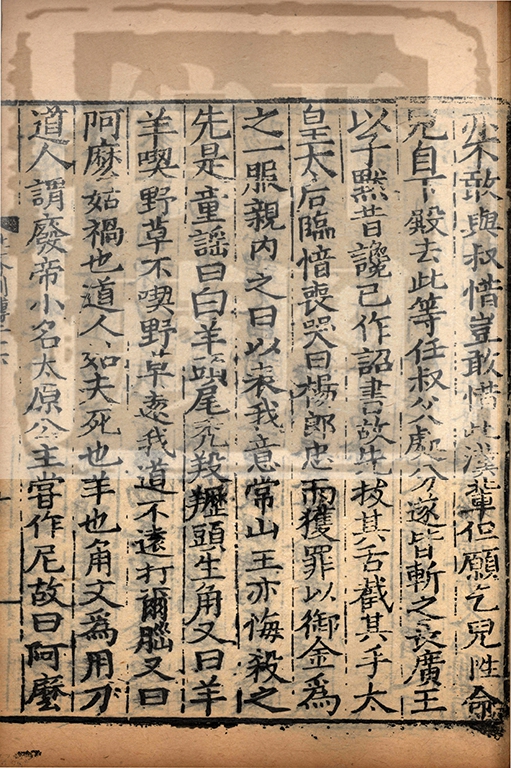 亦不敢與叔惜豈敢惜此漢輩但願乞兒性命
兒自下殿去此等任叔父處分遂皆斬之長廣王
以子黙昔讒己作詔書故先拔其舌截其手太
皇太后臨愔喪哭曰楊郎忠而獲罪以御金爲
之一眼親内之曰以表我意常山王亦悔殺之
先是童謡曰白羊頭尾禿羖䍽頭生角又曰羊
羊喫野草不喫野草逺我道不逺打爾腦又曰
阿麽姑禍也道人姑夫死也羊也角文爲用刀
道人謂廢帝小名太原公主甞作尼故曰阿麽